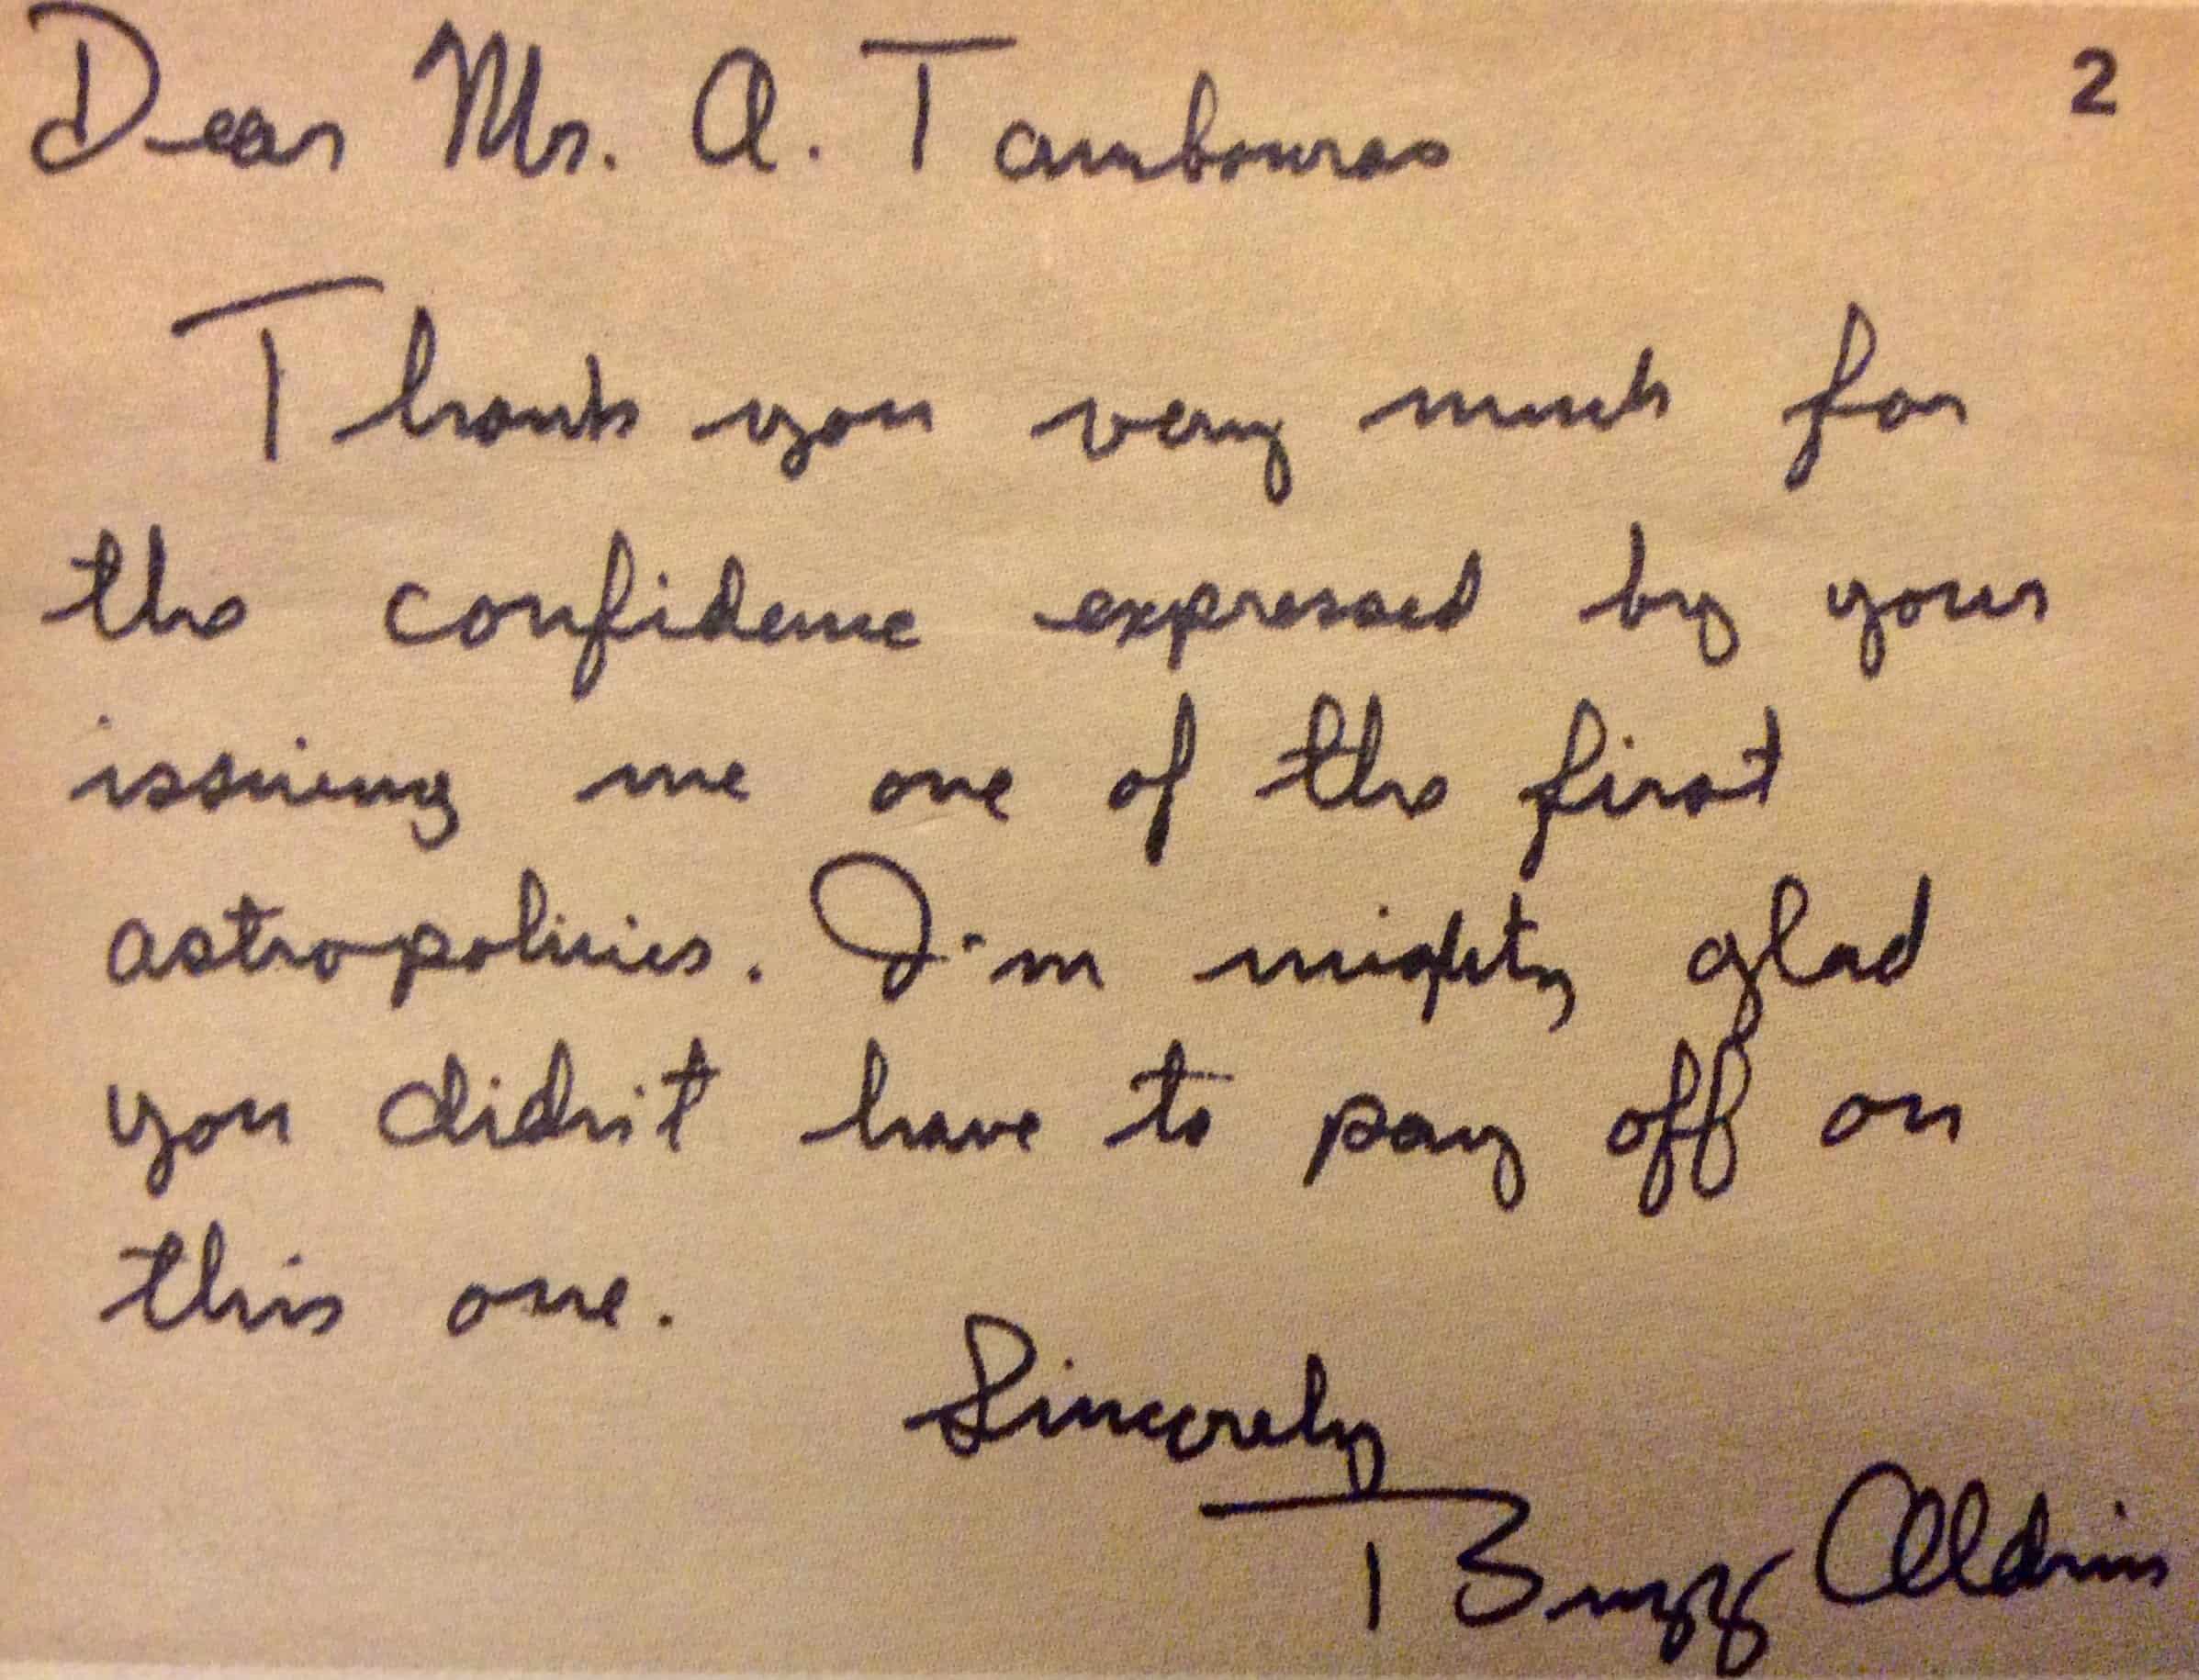 Dear Mr. A. Tambouras 2
Thank you very much for
the confidence expressed by your
issuing me one of the first
astropolicies. I'm mighty glad
you didn't have to pay off on
this one.
Sincerely
Buzz Aldrin